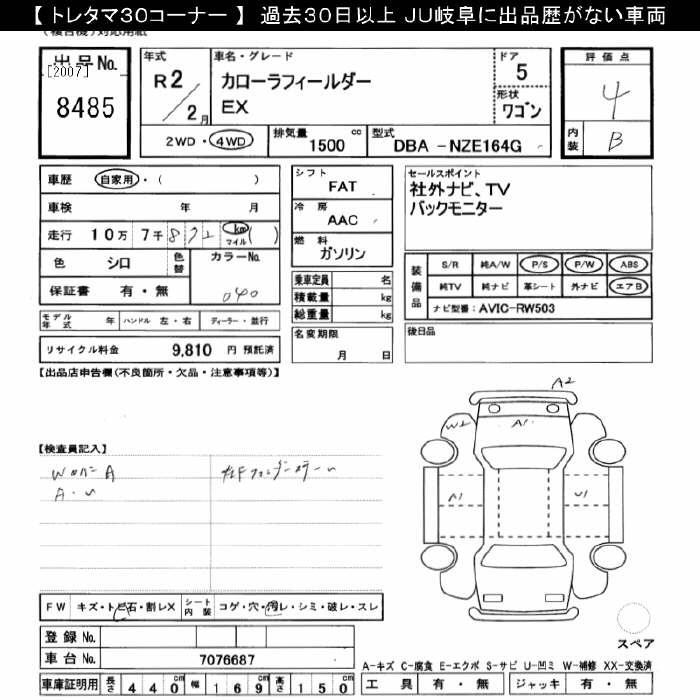 【トレタマ30コーナー】 過去30日以上 JU岐阜に出品歴がない車両
出品No.
[2007]
8485
年式
R2/2月
車名・グレード
カローラフィールダー
EX
ドア
5
形状
ワゴン
2WD・4WD
排気量 1500 cc
型式 DBA -NZE164G
評価点
4
内装 B
車歴 自家用・( )
車検 年 月
走行 10万 7千 8 km マイル ( )
色 シロ 色替
カラーNo.
040
保証書 有・無
モデル年式 年 ハンドル 左・右 ディーラー・並行
リサイクル料金 9,810 円 預託済
シフト
FAT
冷房
AAC
燃料
ガソリン
乗車定員 名
積載量 kg
総重量 kg
名変期限
月 日
セールスポイント
社外ナビ、TV
バックモニター
装備品
S/R 純A/W P/S P/W ABS
純TV 純ナビ 革シート 外ナビ エアB
ナビ型番: AVIC-RW503
後日品
【出品店申告欄(不良箇所・欠品・注意事項等)】
A2
W2
A1
A1
U1
【検査員記入】
FW キズ・トビ石・割レX
シート内装 コゲ・穴・汚レ・シミ・破レ・スレ
登録No.
車台No. 7076687
車庫証明用 長さ 440cm 幅 169cm 高さ 150cm
スペア
A-キズ C-腐食 E-エクボ S-サビ U-凹ミ W-補修 XX-交換済
工具 有・無 ジャッキ 有・無